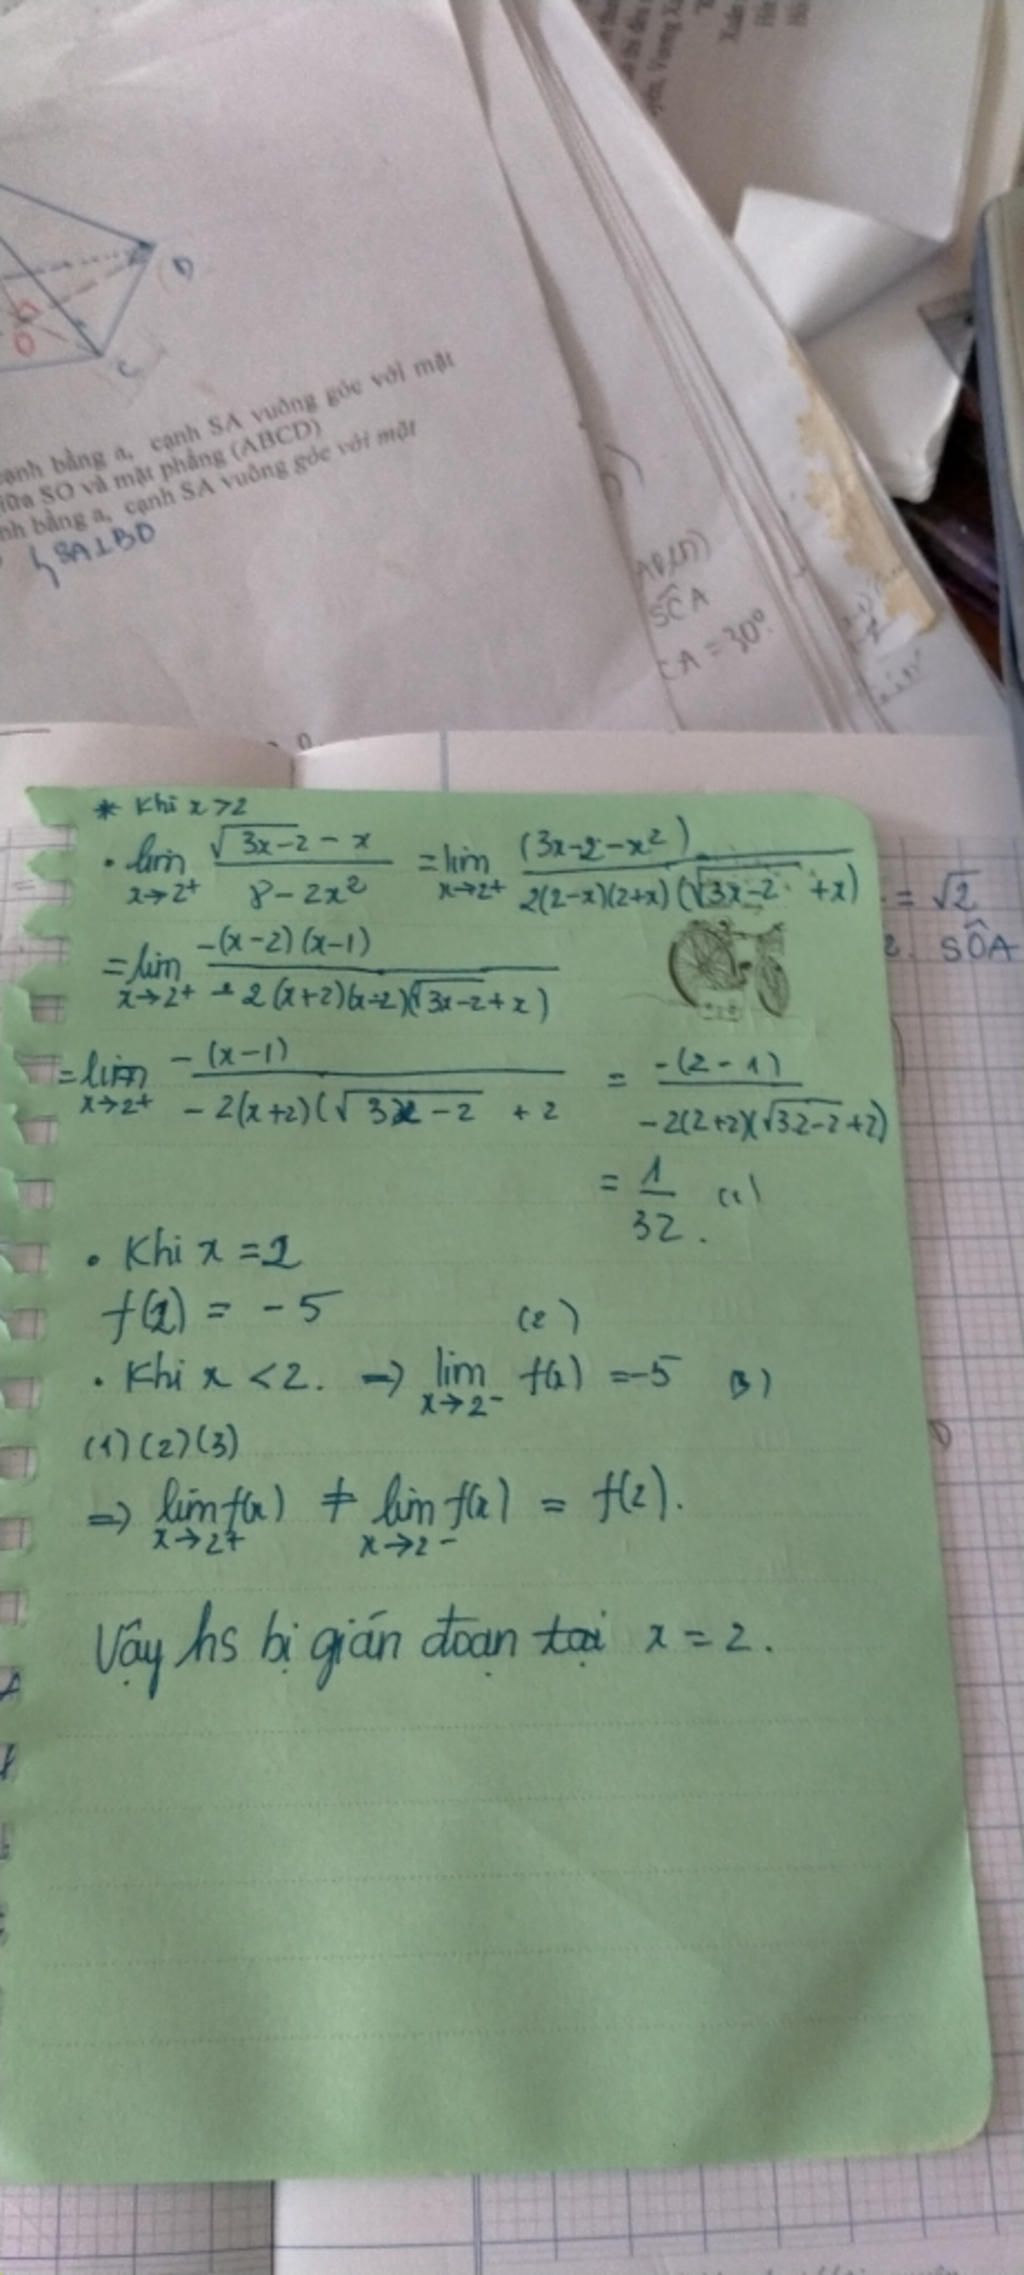 D
O
C
cạnh bằng a, cạnh SA vuông góc với mặt
giữa SO và mặt phẳng (ABCD)
nh bằng a, cạnh SA vuông góc với mặt
SA⊥BD
SĈA
CA = 30°
= √2
SÔA
* Khi x>2
• lim x→2+ (√3x-2 - x)/(8-2x²) = lim x→2+ (3x-2-x²)/(2(2-x)(2+x)(√3x-2 +x))
= lim x→2+ (-(x-2)(x-1))/(-2(x+2)(x-2)(√3x-2+x))
= lim x→2+ (-(x-1))/(-2(x+2)(√3x-2 +2) = (-(2-1))/(-2(2+2)(√3.2-2+2))
= 1/32. (1)
• Khi x = 2
f(2) = -5 (2)
• Khi x < 2. => lim x→2- f(x) = -5 (3)
(1)(2)(3)
=> lim x→2+ f(x) ≠ lim x→2- f(x) = f(2).
Vậy hs bị gián đoạn tại x = 2.